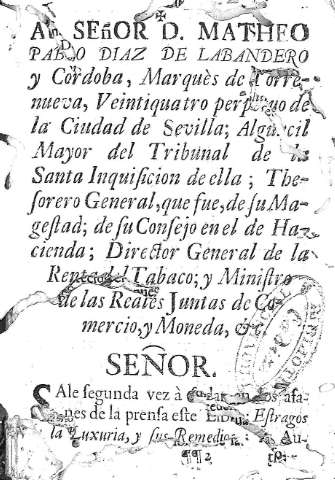 AL SEÑOR D. MATHEO
PABLO DIAZ DE LABANDERO
y Cordoba, Marquès de Torre-
nueva, Veintiquatro perpetuo de
la Ciudad de Sevilla; Alguacil
Mayor del Tribunal de la
Santa Inquisicion de ella; The-
sorero General, que fue, de su Ma-
gestad; de su Consejo en el de Ha-
cienda; Director General de la
Renta del Tabaco; y Ministro
de las Reales Juntas de Co-
mercio, y Moneda, &c.
SEÑOR.
SAle segunda vez à
nes de la prensa este Libro: Estragos
la Luxuria, y sus Remedios: Au-
¶¶ 2